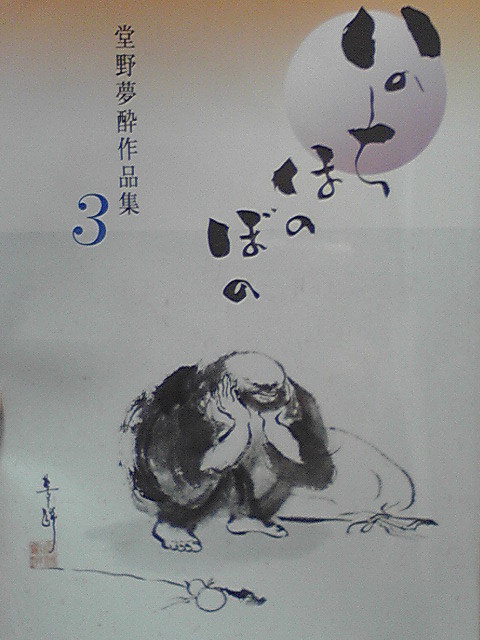 いのち
ほの
ぼの
堂野夢酔作品集
3